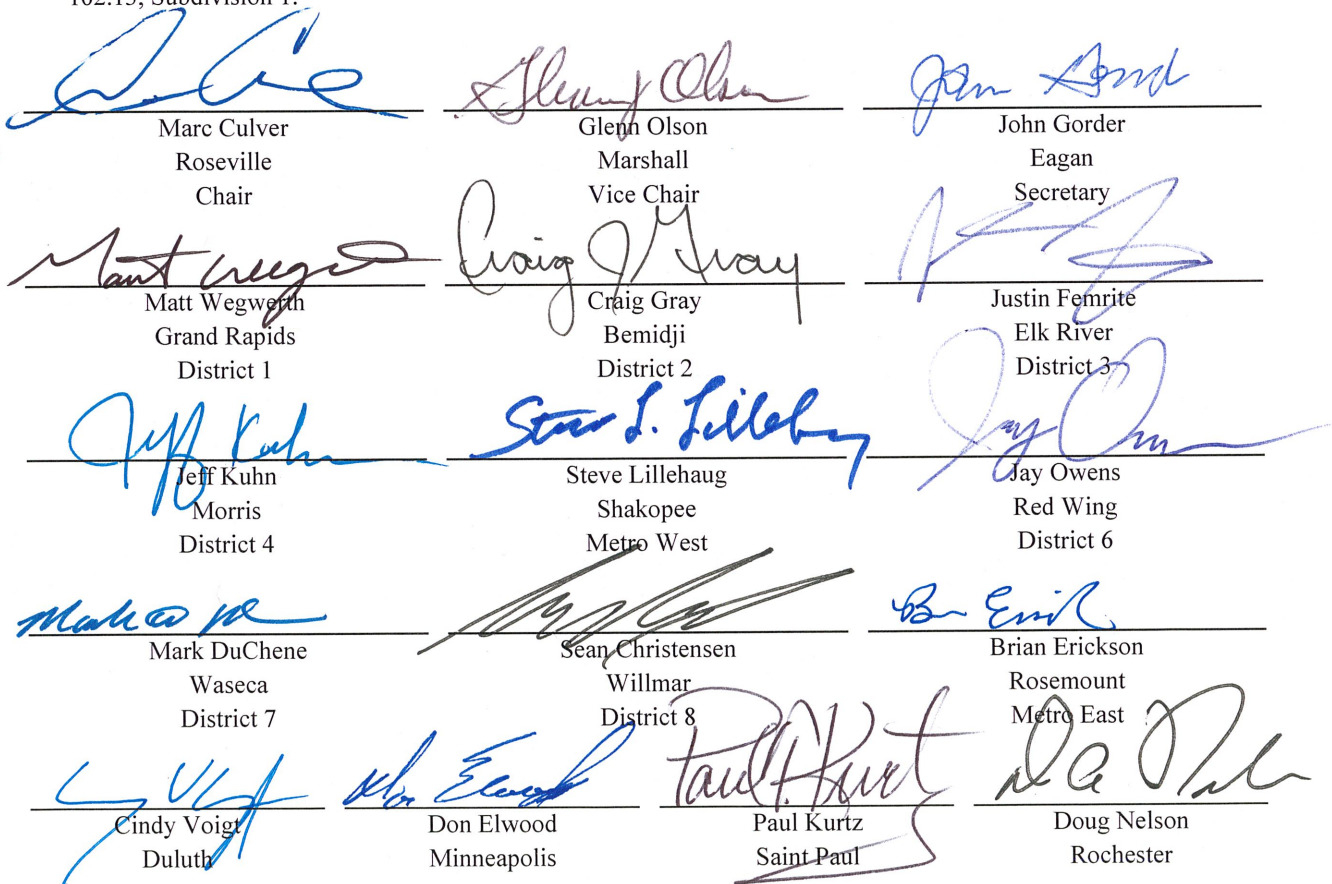 162.13, Subdivision 1.
Marc Culver
Roseville
Chair
Glenn Olson
Marshall
Vice Chair
John Gorder
Eagan
Secretary
Matt Wegwerth
Grand Rapids
District 1
Craig J Gray
Craig Gray
Bemidji
District 2
Justin Femrite
Elk River
District 3
Jeff Kuhn
Jeff Kuhn
Morris
District 4
Steve L. Lillehaug
Steve Lillehaug
Shakopee
Metro West
Jay Owens
Red Wing
District 6
Mark DuChene
Waseca
District 7
Sean Christensen
Willmar
District 8
Brian Erickson
Rosemount
Metro East
Cindy Voigt
Duluth
Don Elwood
Minneapolis
Paul Kurtz
Saint Paul
Doug Nelson
Rochester